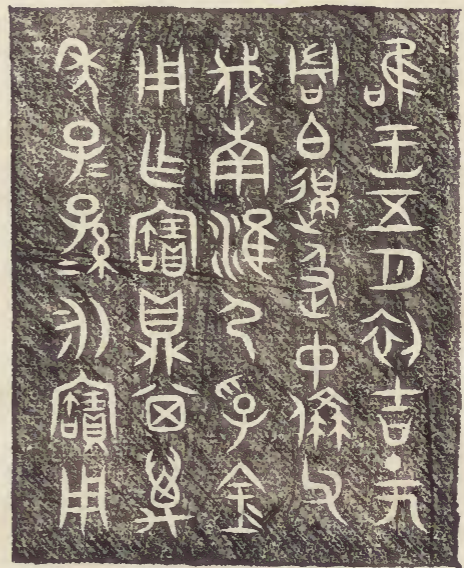 唯王五月初吉丁亥
周白及中父
伐南淮尸孚金
用乍寶鼎其萬
年子=孫=永寶用